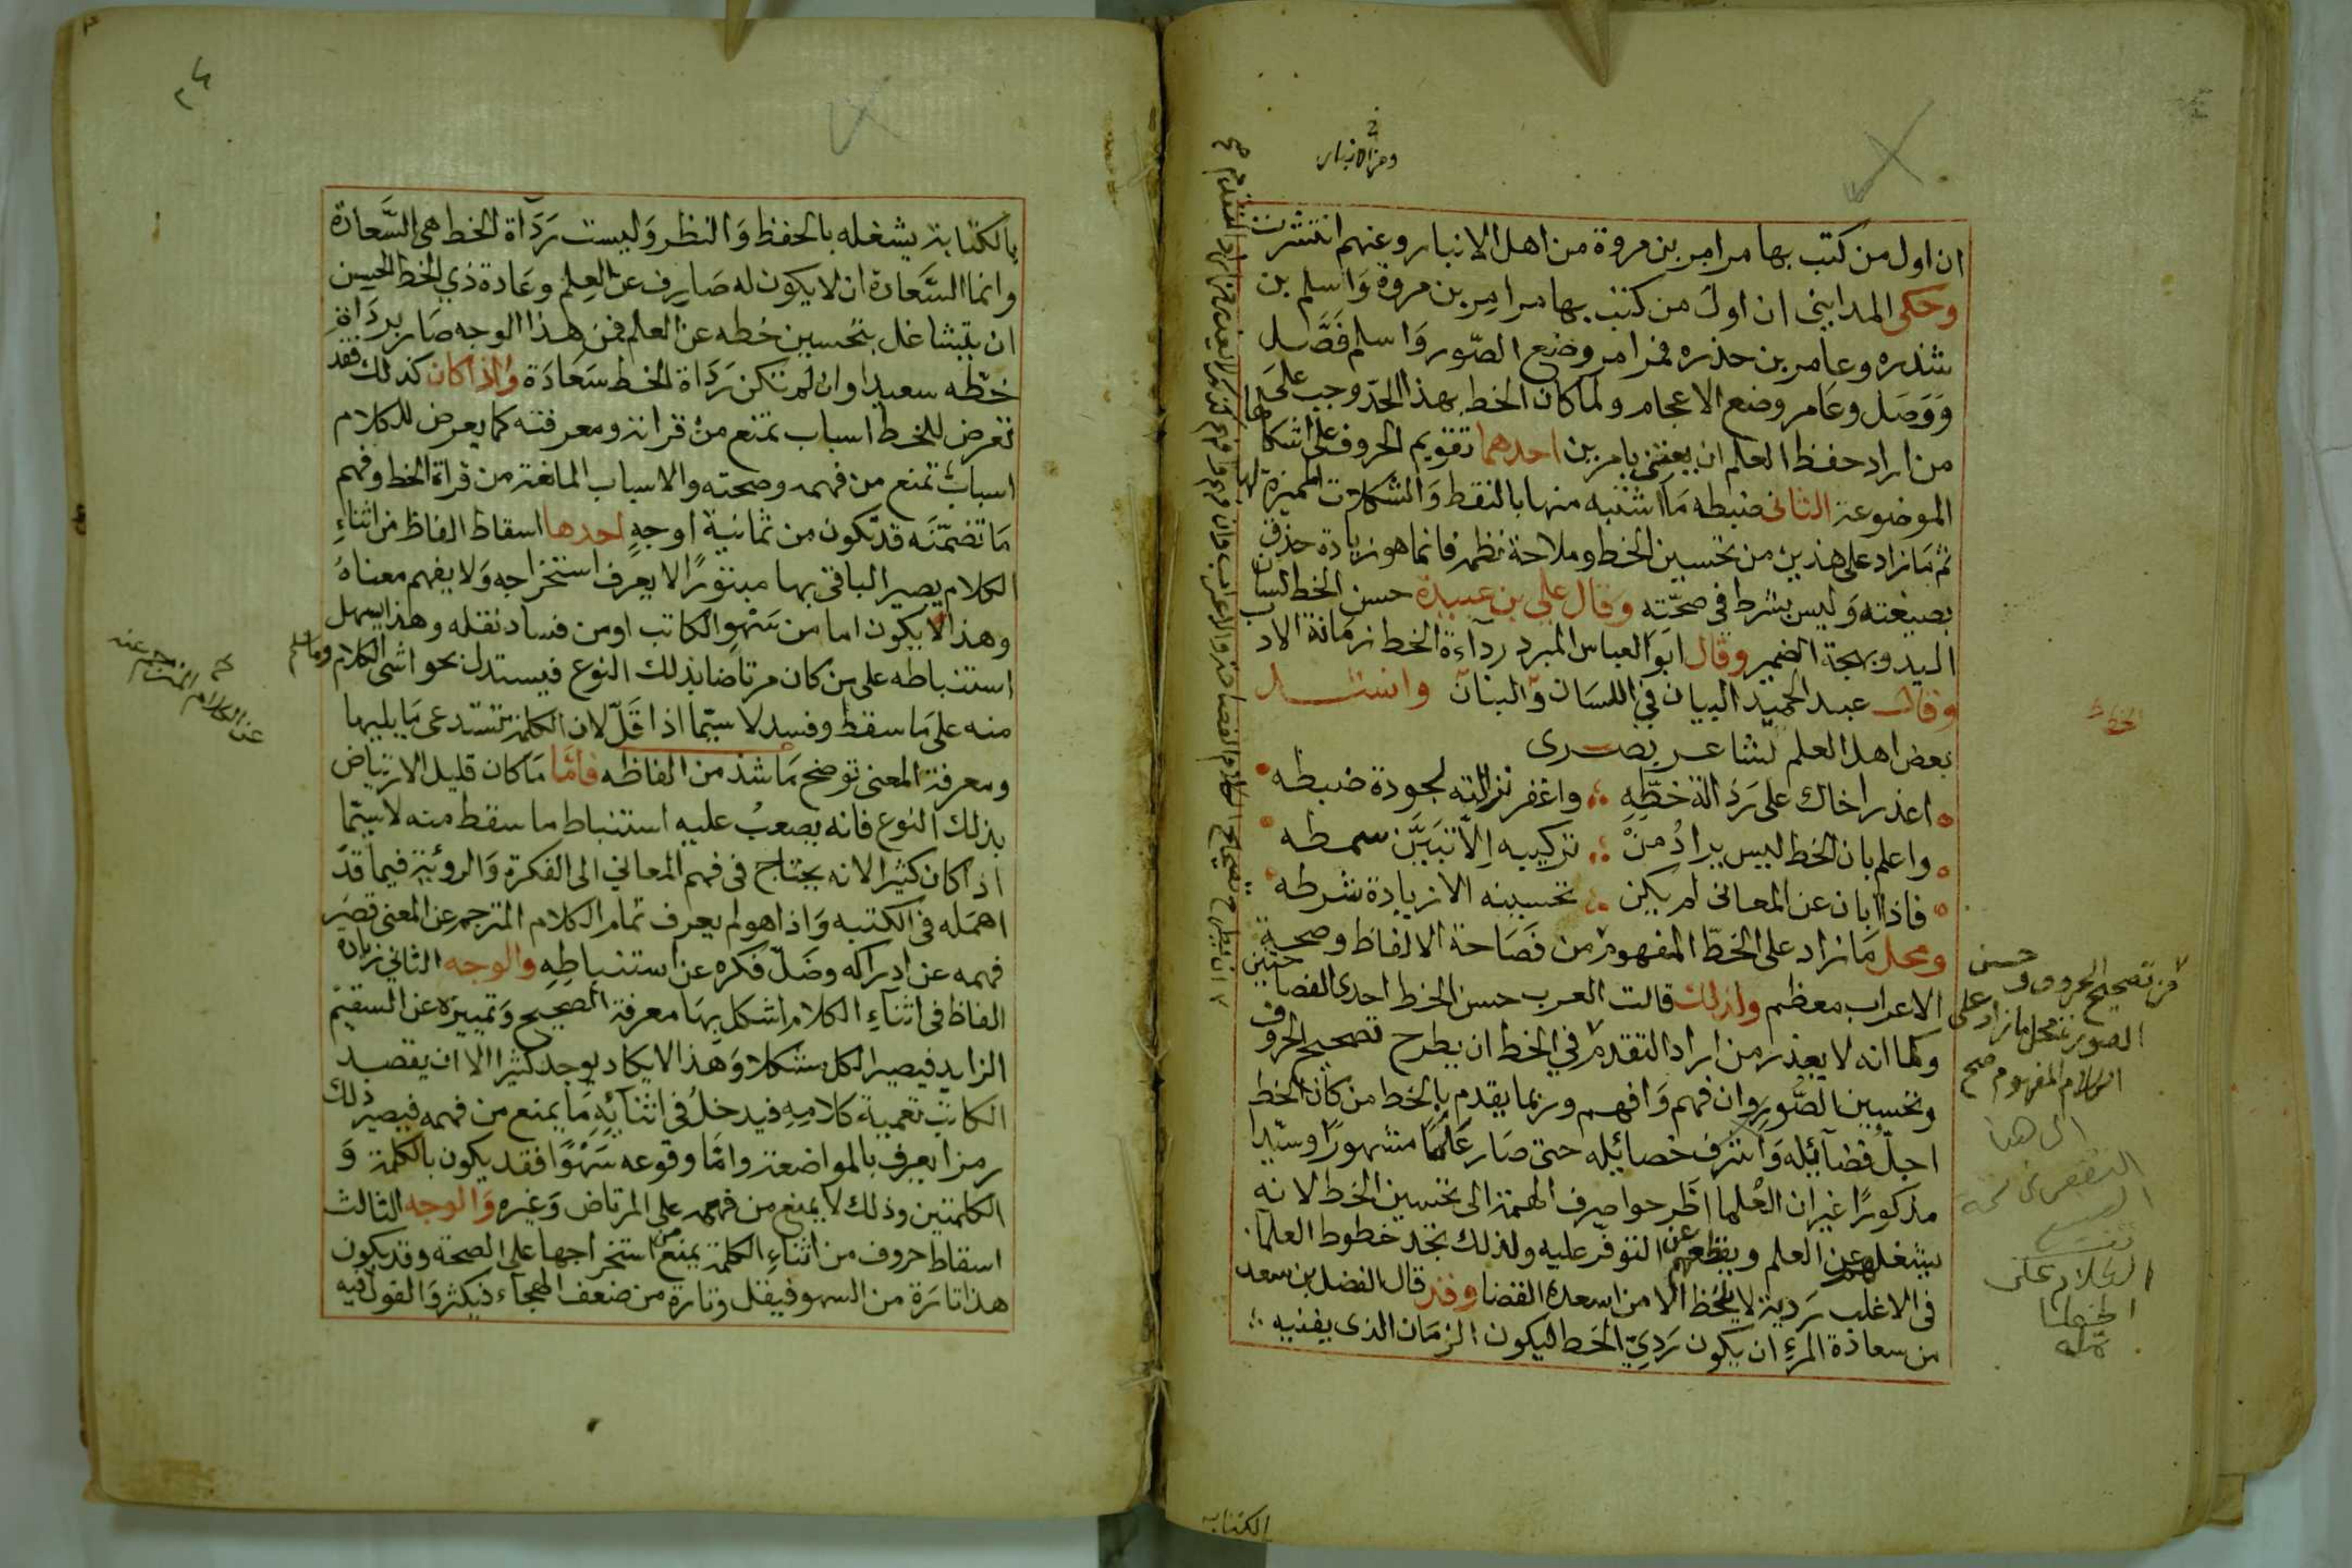 ان اول من كتب بها مرامر بن مروة من اهل الانبار وعنهم انتشرت
وحكى المدايني ان اول من كتب بها مرامر بن مروة وَاسلم بن
شذره وعامر بن حذره فمرامر وضع الصّور وَاسلم فَصَّل
وَوَصَل وعَامر وضع الاعجام ولما كان الخط بهذا الحدّ وجب على
من اراد حفظ العلم ان يعتني بامرين احدهما تقويم الحروف على اشكالها
الموضوعة لها الثانى ضبطه مَا اشتبه منها بالنقط وَالشكلات المميزة
ثم مَا زاد على هذين من تحسين الخط وملاحة نظمه فانما هو زيادة حذق
بصيغته وَليس بشرط في صحّتِه وقال علي بن عبيدة حسن الخط لسان
اليد وبهجة الضمير وقال ابوَ العباس المبرد رداءة الخط زمَانة الادب
وقال عبد الحميد البيان في اللسَان وَالبنان وانشد
بعض اهل العلم لشاعر بصرى
اعذر اخاك على رَدَالة خطّهِ واغفر نزالته لجودة ضبطه
واعلم بان الخط ليس يرادُ مِنْ تركيبه اِلّا تبَيَّن سمطه
فاذا ابان عن المعانى لم يكن تحسينه الا زيادة شرطه
ومحل مَا زاد على الخَطّ المفهوم من فَصَاحة الالفاظ وصحة
الاعراب معظم ولذلك قالت العرب حسن الخط احدى الفصاحتين
وكما انه لا يعذر من اراد التقدم في الخط ان يطرح تصحيح الحروف
وتحسين الصُّورِ وان فهم وَافهم وربما يقدم بالخط من كان الخط
اجلّ فضَآئِله وَاشرف خصائِله حتى صَار عَلَمًا مشهورًا وسيّدا
مذكورًا غير ان العُلما اطَّرحوا صرف الهمة الى تحسين الخط لانه
يشغلهم عن العلم ويقطعهم عن التوفّر عليه ولذلك تجد خطوط العلمآ
فى الاغلب رَدية لا يلحَظ الا من اسعده القضا وقد قال الفضل بن سعد
من سعادة المرءِ ان يكون رَدِيّ الخط ليكون الزمَان الذى يفنيه
من تصحيح الحروف وحسن
الصورة محل ما زاد على
الكلام المفهوم صح
الى هنا
الكلام على
الكتابه
بالكتابة يشغله بالحفظ وَالنظر وَليست رَدَآة الخط هى السَّعادة
وانما السَّعادة ان لا يكون له صَارِف عن العِلم وعَادة ذي الخط الحسن
ان يتشاغل بتحسين خطه عن العلم فمن هذا الوجه صَار برداةِ
خطّه سعيدا وان لم تكن رَدَاة الخط سَعَادَة واذا كان كذلك فقد
تعرض للخط اسباب تمنع من قراته ومعرفته كما يعرض للكلام
اسبابٌ تمنع من فهمه وصحته والاسباب المانعة من قراة الخط وفهم
مَا تضمّنَه قد تكون من ثمانية اوجهٍ احدها اسقاط الفاظ من اثناءِ
الكلام يصير الباقى بها مبتورًا لا يعرف استخراجه وَلا يفهم معناهُ
وهذا لا يكون اما من سَهْو الكاتب او من فساد نقله وهذا يسهل
استنباطه على من كان مرتاضا بذلك النوع فيستدل بحواشى الكلام وما سلم
منه على مَا سقط وفسد لا سيّما اذا قَلّ لان الكلمة تستدعى مَا يليها
ومعرفة المعنى توضح مَا شذ من الفاظه فامّا مَا كان قليل الارتياض
بذلك النوع فانه يصعبُ عليه استنباط ما سقط منه لا سيّما
اذا كان كثيرا لانه يحتاج فى فهم المعاني الى الفكرة وَالروئية فيما قد
اهمَله فى الكتبه وَاذا هو لم يعرف تمام الكلام المترجم عن المعنى قصَر
فهمه عن ادراكه وضَلّ فكره عن استنباطِهِ والوجه الثاني زيادة
الفاظ فى اثناءِ الكلام اشكل بهَا معرفة الصحيح وَتمييزه عن السقيم
الزايد فيصير الكل مشكلا وَهذا لا يكاد يوجد كثيرا الا ان يقصد
الكاتِب تعمية كلامِهِ فيدخلُ فى اثنائِهِ مَا يمنع من فهمه فيصير ذلك
رمزا يعرف بالمواضعة وامّا وقوعه سَهْوًا فقد يكون بالكلمة وَ
الكلمتين وذلك لا يمنع من فهمه على المرتاض وَغيره وَالوجه الثالث
اسقاط حروف من اثناءِ الكلمة يمنع من استخراجها على الصحة وقد يكون
هذا تارَة من السهو فيقل وتارة من ضعف الهجاء فيكثر وَالقول فيه